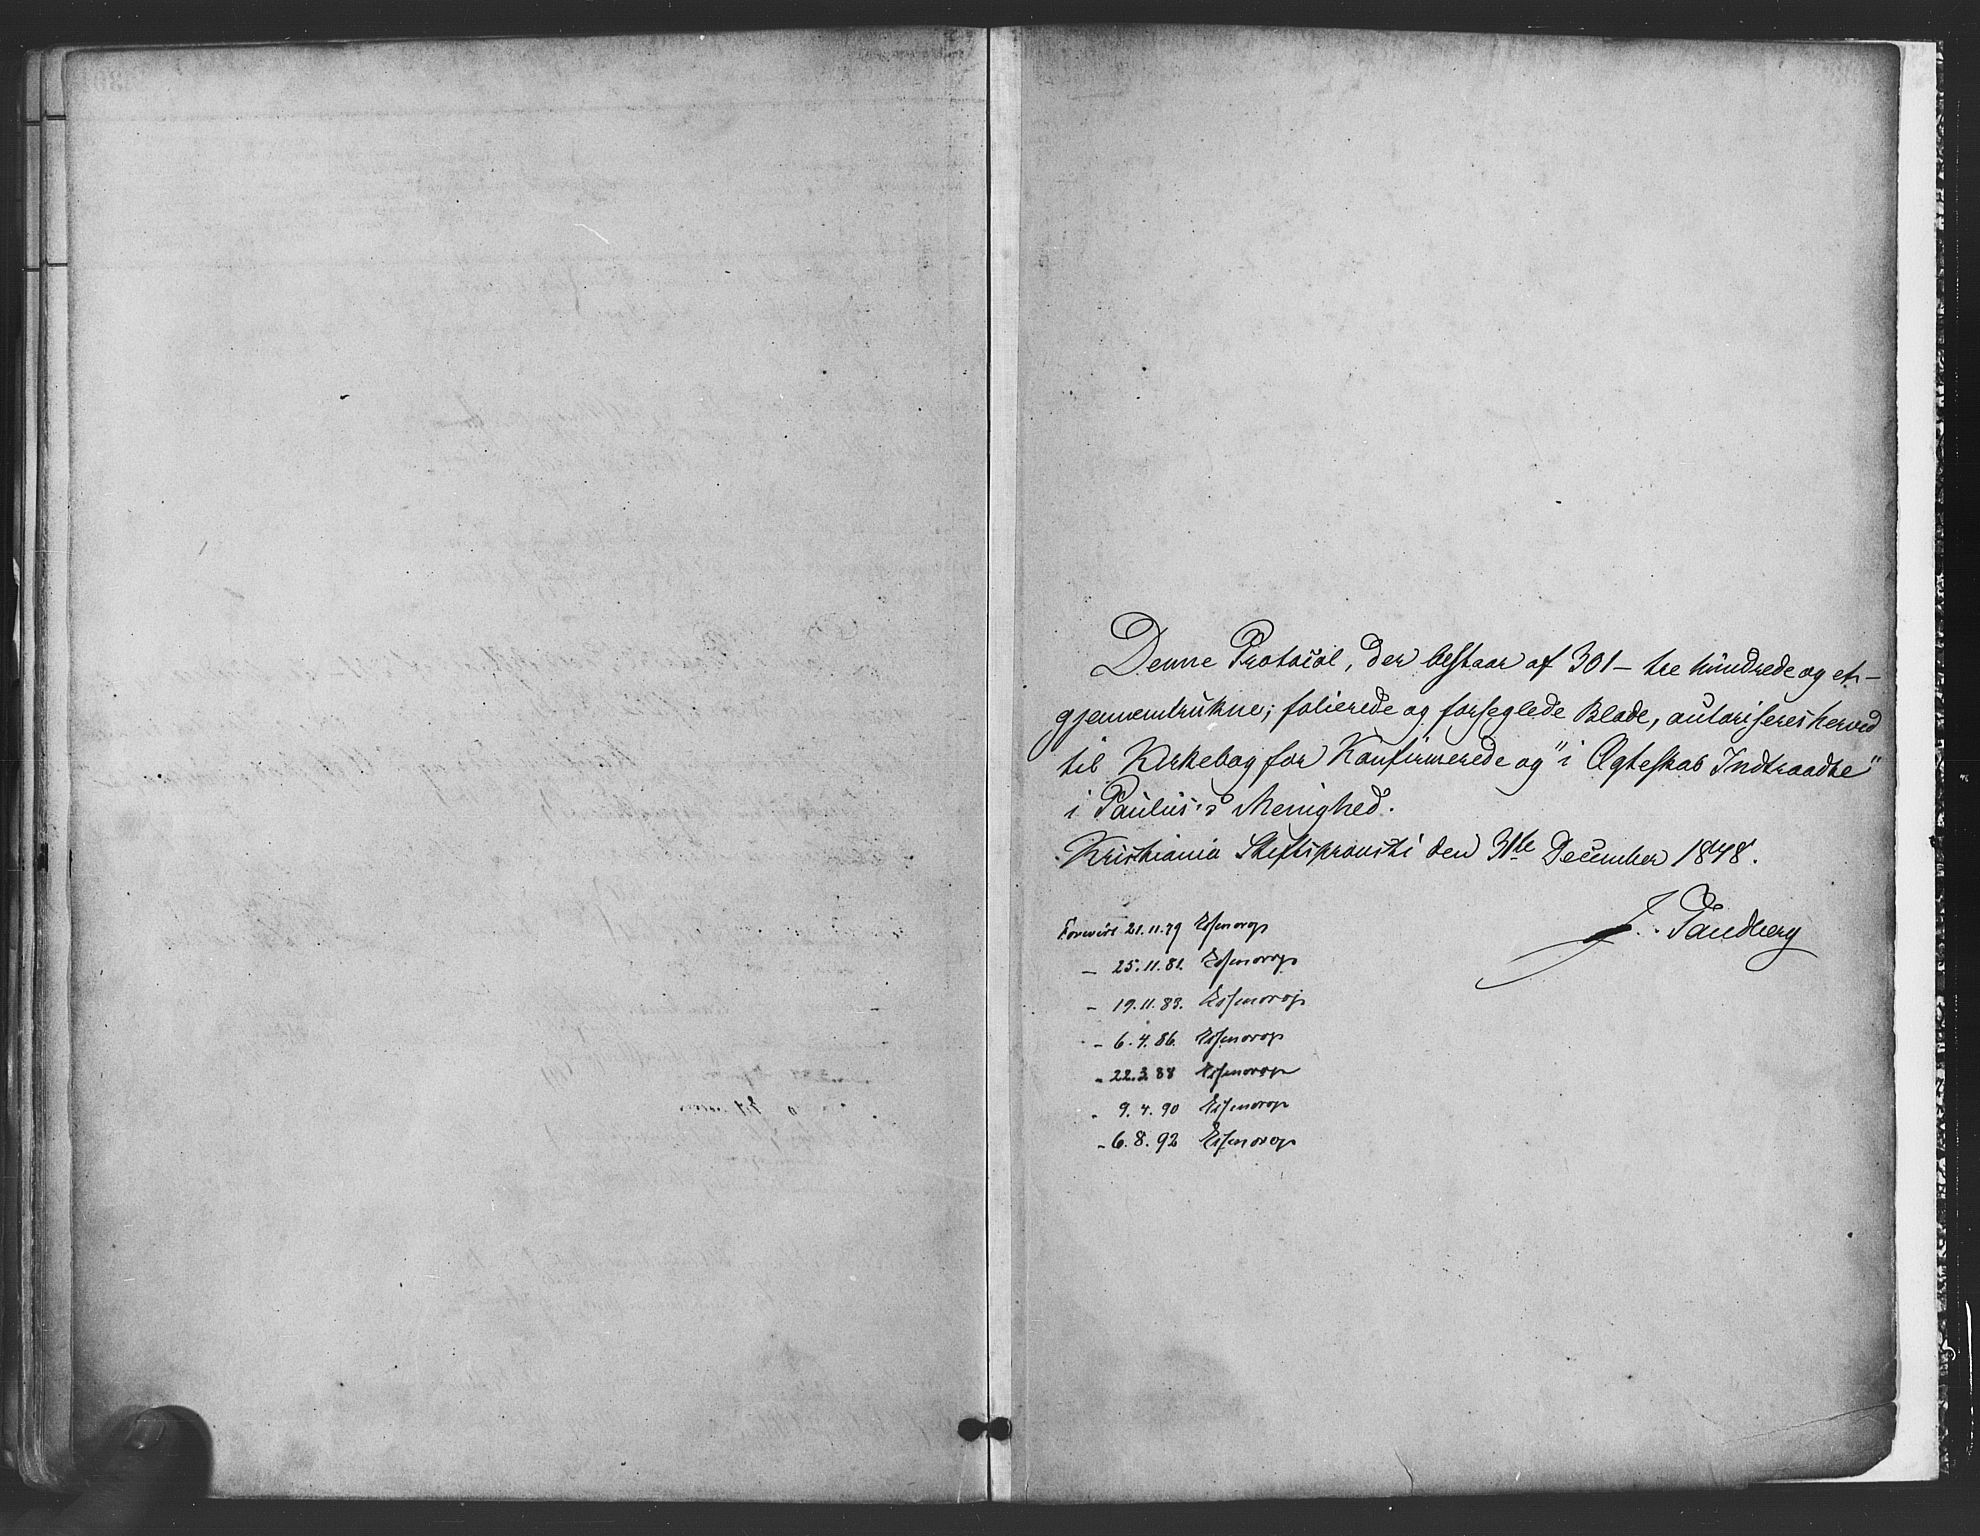 Denne Protocol, der bestaar af 301 – tre hundrede og et –
gjennemtrukne, folierede og forseglede Blade, autoriseres herved
til Kirkebog for Konfirmerede og "i Ægteskab Indtraadte"
i Paulus's Menighed.
Kristiania Stiftsprovsti den 31te December 1878.
J. Sandberg
Forevist 21.11.79 Essendrop
– 25.11.81. Essendrop
– 19.11.83. Essendrop
– 6.4.86. Essendrop
– 22.3.88 Essendrop
– 9.4.90 Essendrop
– 6.8.92 Essendrop